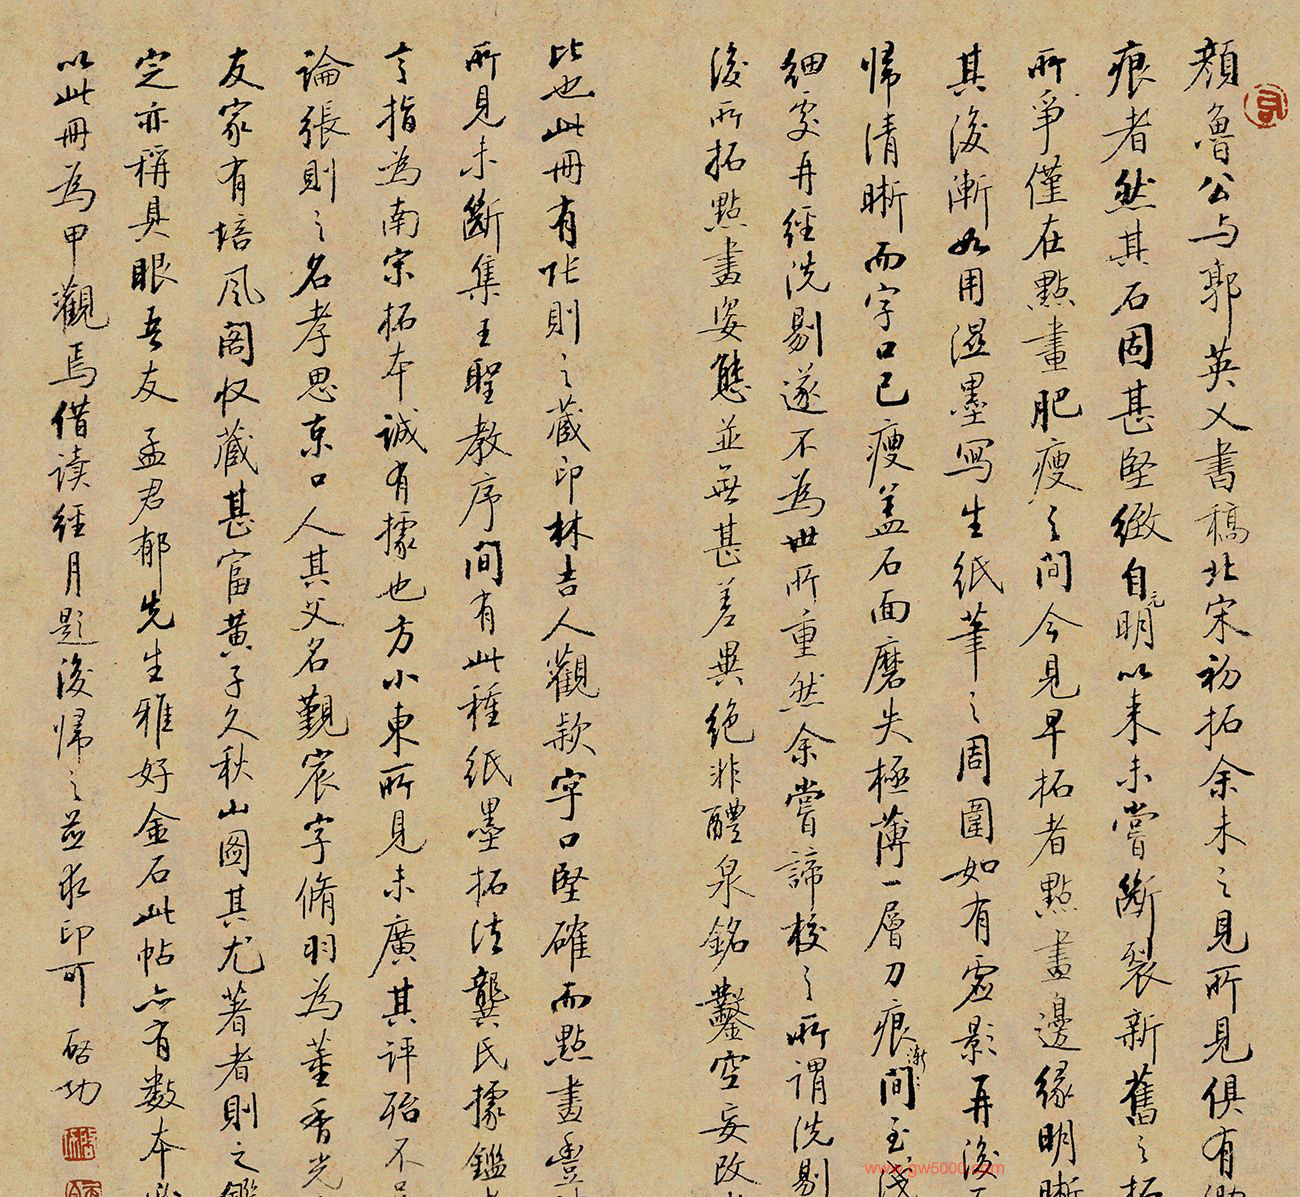 顏魯公与郭英乂書稿北宋初拓余未之見所見俱有
痕者然其石固甚堅緻自元明以來未嘗斷裂新舊之拓
所爭僅在點畫肥瘦之間今見早拓者點畫邊緣明晰
其後漸如用濕墨寫生紙筆之周圍如有虛影再後
歸清晰而字口已瘦盖石面磨失極薄一層刀痕漸間至淺
細處再經洗剔遂不為世所重然余嘗諦校之所謂洗剔
後所拓點畫姿態並無甚差異絕非醴泉銘鑿空妄改
比也此冊有張則之藏印林吉人觀款字口堅確而點畫豐
所見未斷集王聖教序間有此種紙墨拓法龔氏據鑑
言指為南宋拓本誠有據也方小東所見未廣其評殆不
論張則之名孝思京口人其父名覲宸字脩羽為董香光
友家有培風閣收藏甚富黃子久秋山圖其尤著者則之鑑
定亦稱具眼吾友孟君郁先生雅好金石此帖亦有數本
以此冊為甲觀焉借读經月題後歸之並求印可 啓功
www.gw5000.com